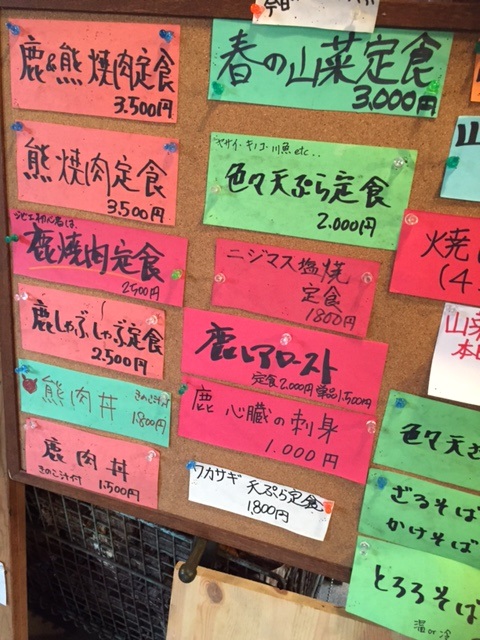 鹿&熊焼肉定食
3.500円
熊焼肉定食
3500円
ジビエ初心者は、
鹿焼肉定食
2500円
鹿しゃぶしゃぶ定食
2,500円
熊肉丼
きのこ汁付
1.800円
鹿肉丼
きのこ汁付 1.500円
今日
春の山菜定食
3.000円
ヤサイ・キノコ・川魚etc..
色々天ぷら定食
2.000円
ニジマス塩焼
定食
1800円
鹿レアロースト
定食2.000円 単品1.500円
鹿心臓の刺身
1.000円
ワカサギ天ぷら定食
1.800円
山
焼
(4
山菜
本日
色々天ざ
ざるそば
かけそば
とろろそば
温or冷